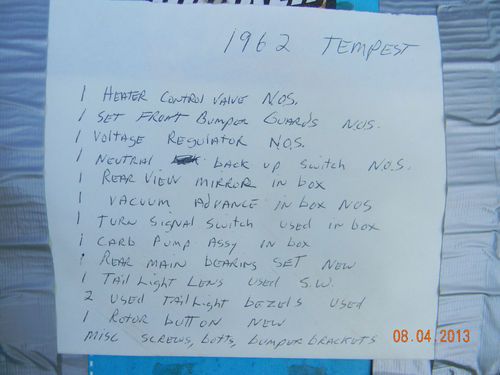 1962 TEMPEST
1 HEATER CONTROL VALVE N.O.S.
1 SET FRONT BUMPER GUARDS N.O.S.
1 VOLTAGE REGULATOR N.O.S.
1 NEUTRAL BACK UP SWITCH N.O.S.
1 REAR VIEW MIRROR IN BOX
1 VACUUM ADVANCE IN BOX NOS
1 TURN SIGNAL SWITCH USED IN BOX
1 CARB PUMP ASSY IN BOX
1 REAR MAIN BEARING SET NEW
1 TAIL LIGHT LENS USED S.W.
2 USED TAIL LIGHT BEZELS USED
1 ROTOR BUTTON NEW
MISC SCREWS, BOLTS, BUMPER BRACKETS
08.04.2013